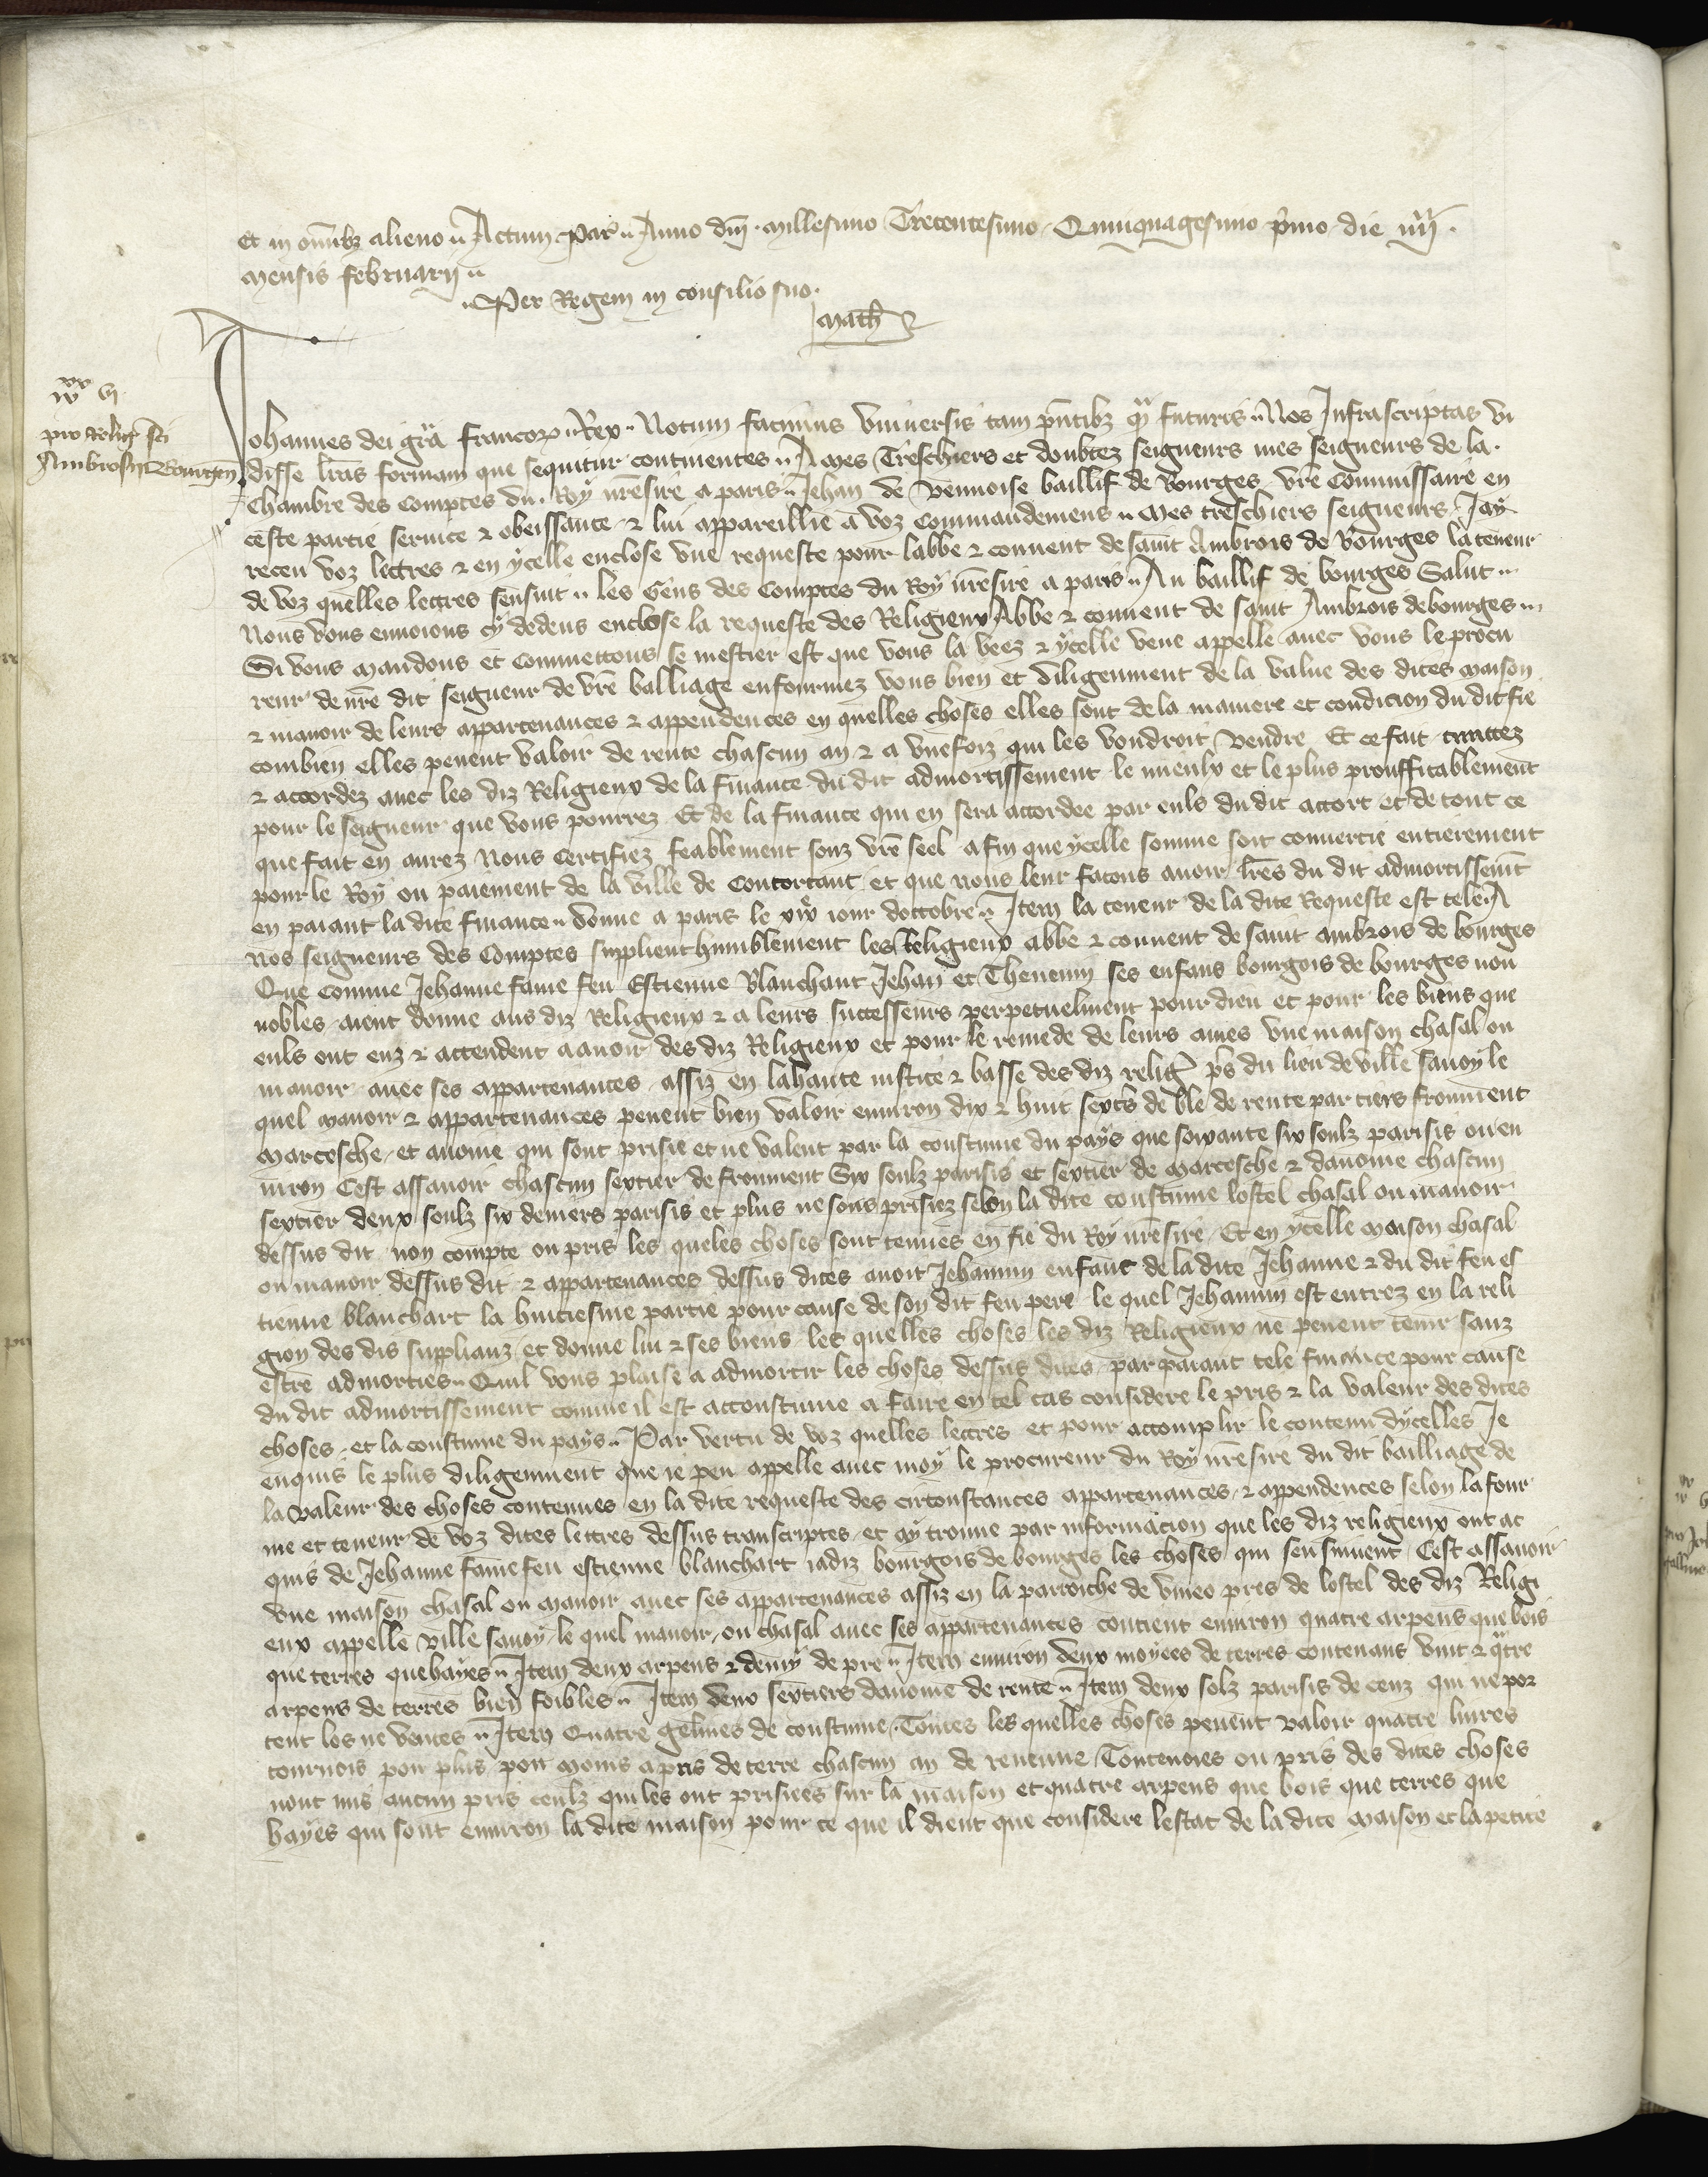 et in omibz alieno Actum Par Anno dni millesimo Trecentesimo Quinquagesimo pmo die iiij
mensis februarij
Per Regem in consilio suo
Math
pro relig sci
Ambrosij Bituricen
Johannes dei gra francor Rex Notum facimus Universis tam pntibz qm futuris Nos Infrascriptas vi
disse lras formam que sequitur continentes A mes Treschiers et doubtez seigneurs mes seigneurs de la
Chambre des comptes du Roy nresire a paris Jehan de Vennoise baillif de Bourges vre Commissaire en
ceste partie service & obeissance & lui appareillie a voz commandemens mes treschiers seigneurs Jay
receu voz lectres & en ycelle enclose une requeste pour labbe & convent de saint Ambrois de bourges la teneur
de voz quelles lectres sensuit les Gens des Comptes du Roy nresire a paris Au baillif de bourges Salut
Nous vous envoions cy dedens enclose la requeste des Religieux Abbe & convent de saint Ambrois de bourges
Si vous mandons et commettons se mestier est que vous la veez & ycelle veue appelle avec vous le procu
reur de nre dit seigneur de vre balliage enfourmez vous bien et diligenment de la value des dites maison
& manoir de leurs appartenances & appendences en quelles choses elles sont de la maniere et condicion du dit fie
combien elles pevent valoir de rente chascun an & a une foiz qui les voudroit vendre Et ce fait traictez
& accordez avec les diz Religieux de la finance du dit admortissement le mieulx et le plus prouffitablement
pour le seigneur que vous pourrez Et de la finance qui en sera accordee par euls du dit accort et de tout ce
que fait en aurez Nous certifiez feablement souz vre seel afin que ycelle somme soit convertie entierement
pour le Roy ou paiement de la ville de Contortant et que nous leur facons avoir lres du dit admortissemt
en paiant la dite finance donne a paris le jour doctobre Item la teneur de la dite Requeste est tele A
nos seigneurs des Comptes supplient humblement les Religieux abbe & convent de saint ambrois de bourges
Que comme Jehanne fame feu Estienne Blanchart Jehan et Thevenin ses enfans bourgois de bourges non
nobles aient donne aus diz Religieux & a leurs successeurs perpetuelment pour dieu et pour les biens que
euls ont euz & attendent a avoir des diz Religieux et pour le remede de leurs ames une maison chasal ou
manoir avec ses appartenances assiz en la haute justice & basse des diz relig ps du lieu de ville savoy le
quel manoir & appartenances pevent bien valoir environ dix & huit sexts de ble de rente par tiers froument
marcesche et avoine qui sont prisie et ne valent par la coustume du pays que soixante six soulz parisis ou en
viron Cest assavoir chascun sextier de froument Six soulz parisis et sextier de marcesche & davoine chascun
sextier deux soulz six deniers parisis et plus ne sons prisiez selon la dite coustume lostel chasal ou manoir
dessus dit non compte ou pris les queles choses sont tenues en fie du Roy nresire Et en ycelle maison chasal
ou manoir dessus dit & appartenances dessus dites avoit Jehannin enfant de la dite Jehanne & du dit feu es
tienne blanchart la huitiesme partie pour cause de son dit feu pere le quel Jehannin est entrez en la reli
gion des dis supplianz et donne lui & ses biens les quelles choses les diz Religieux ne pevent tenir sanz
estre admorties Quil vous plaise a admortir les choses dessus dites par paiant tele finance pour cause
du dit admortissement comme il est accoustume a faire en tel cas considere le pris & la valeur des dites
choses et la coustume du pays Par vertu de voz quelles lectres et pour accomplir le contenu dycelles Je
enquis le plus diligenment que je peu appelle avec moy le procureur du Roy nresire du dit bailliage de
la valeur des choses contenues en la dite requeste des circonstances appartenances & appendences selon la four
me et teneur de voz dites lectres dessus transcriptes et ay trouve par informacion que les diz religieux ont ac
quis de Jehanne fame feu estienne blanchart jadiz bourgois de bourges les choses qui sensuivent Cest assavoir
une maison chasal ou manoir avec ses appartenances assiz en la parroiche de vineo pres de lostel des diz Religi
eux appelle Ville savoy le quel manoir ou chasal avec ses appartenances contient environ quatre arpens que bois
que terres que bayes Item deux arpens & demy de pre Item environ deux moyees de terres contenans vint & qtre
arpens de terres bien foibles Item deux sextiers davoine de rente Item deux solz parisis de cenz qui ne por
tent los ne ventes Item Quatre gelines de coustume Toutes les quelles choses pevent valoir quatre livres
tournois pou plus pou moins a pris de terre chascun an de revenue Toutevoies ou pris des dites choses
nont mis aucun pris ceulz qui les ont prisiees sur la maison et quatre arpens que bois que terres que
bayes qui sont environ la dite maison pour ce que il dient que considere lestat de la dite maison et la petite